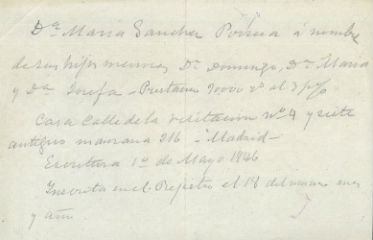 Dª Maria Sanchez á nombre
de sus hijos menores, Dn Domingo, Dª Maria
y Dª Josefa - al 3 p%
Casa Calle de la Visitacion nº 4 y siete
antiguo manzana 216 - Madrid -
Escritura 1º de Mayo 1846
Inscrita en el Registro el 18 del mismo mes
y año.